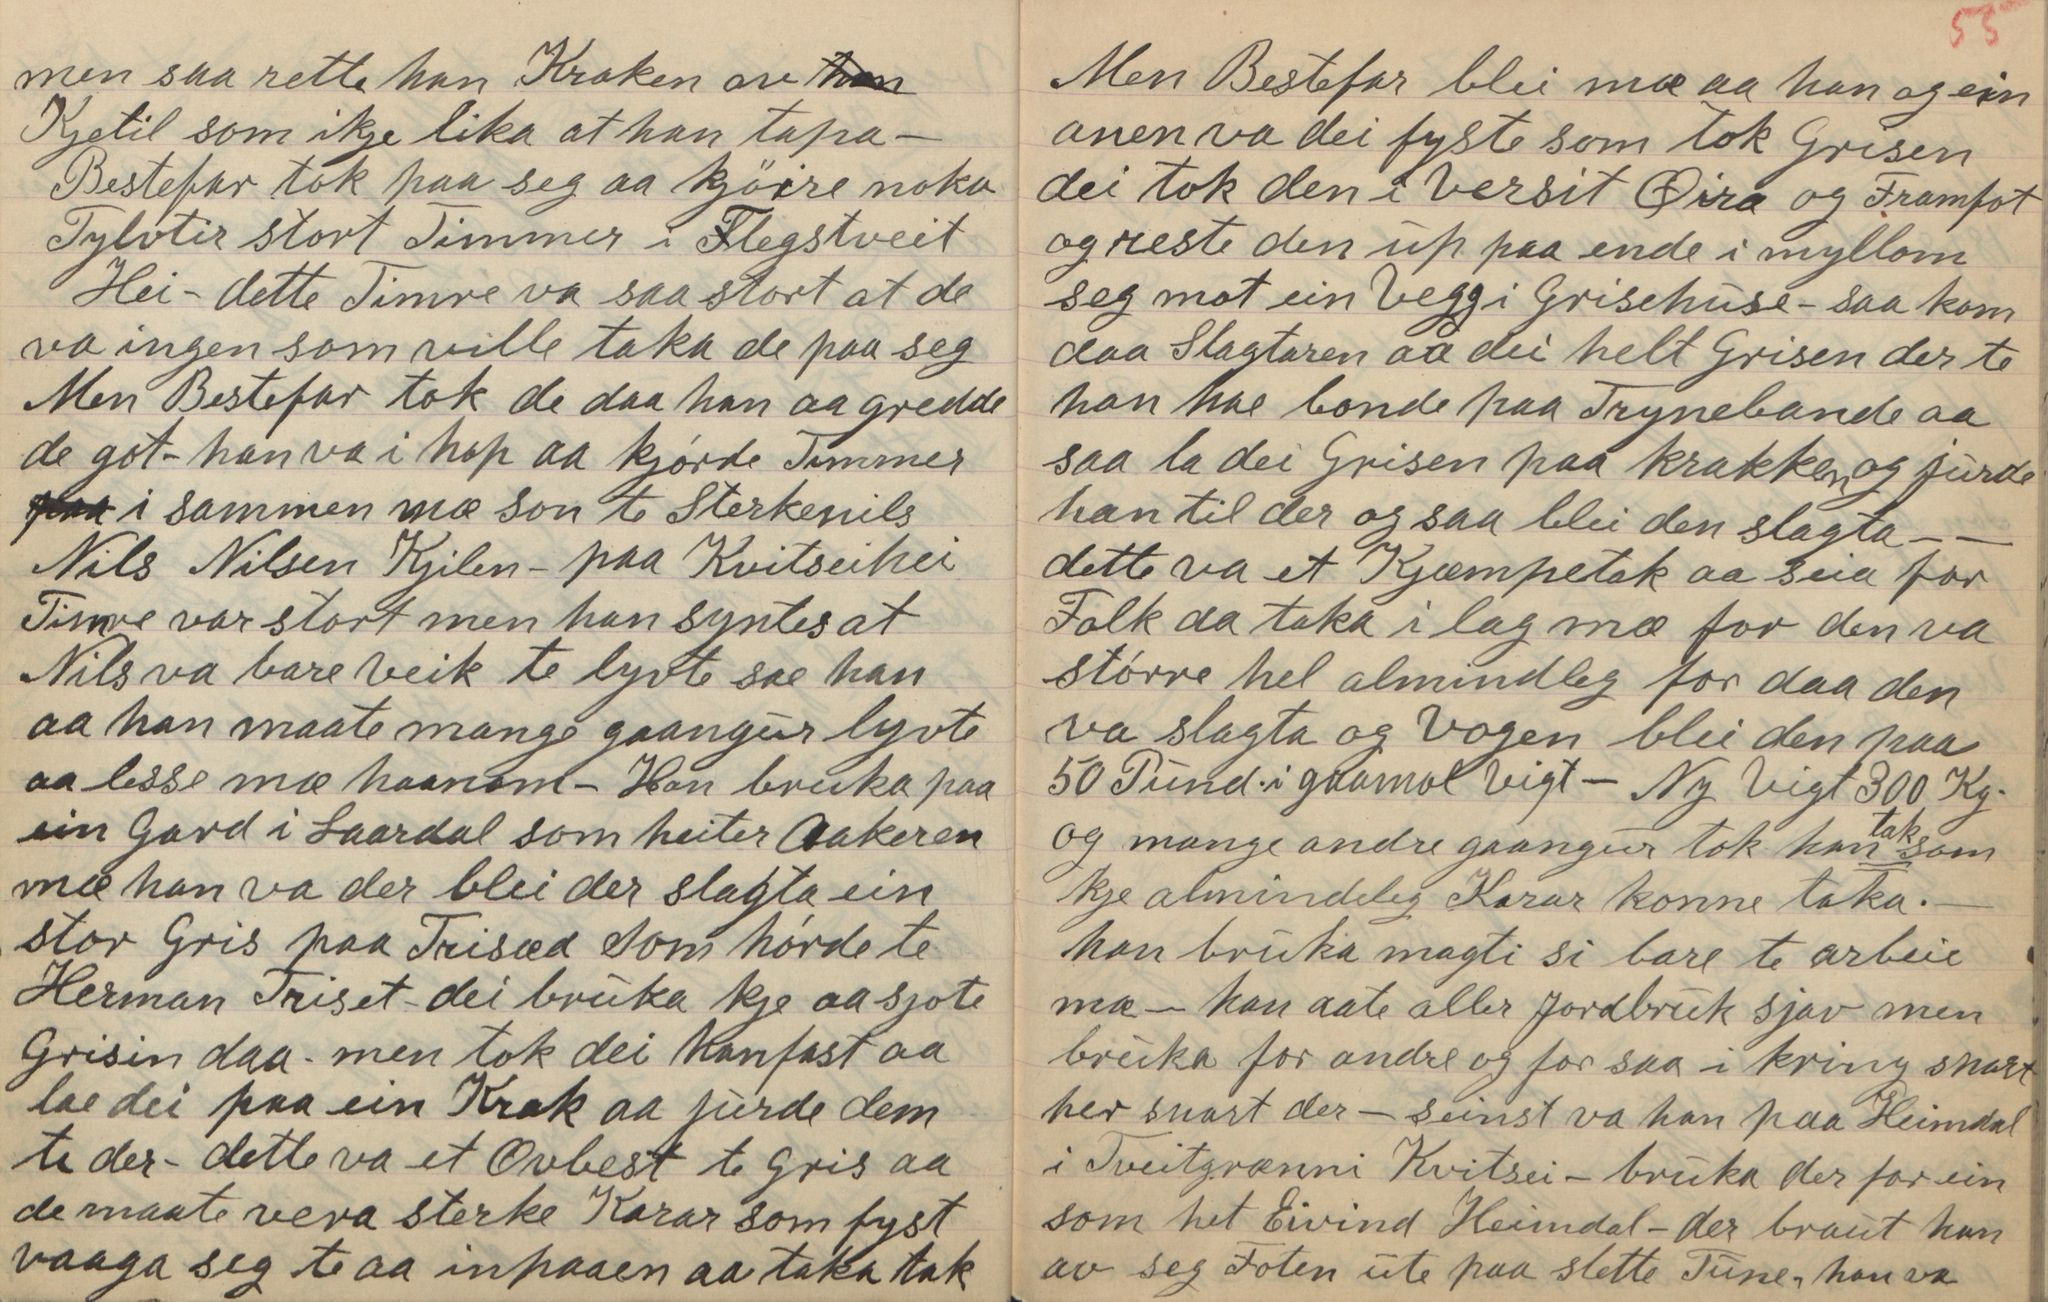 men saa rette han Kraken av han
Kjetil som ikje lika at han tapa —
Bestefar tok paa seg aa kjöire noka
Tylvtir stort Timmer i Flegstveit
Hei - dette Timre va saa stort at de
va ingen som ville taka de paa seg
Men Bestefar tok de daa han aa gredde
de got - han va i hop aa kjórde Timmer
paa i sammen mæ son te Sterkenils
Nils Nilsen Kjilen - paa Kvitseihei
Timre var stort men han syntes at
Nils va bare veik te lyvte sae han
aa han maate mange gaangur lyvte
aa lesse mæ haanom - Han bruka paa
ein Gard i Laardal som heiter Aakeren
mæ han va der blei der slagta ein
stor Gris paa Trisæd som hórde te
Herman Triset - dei bruka kje aa sjote
Grisin daa - men tok dei hanfast aa
lae dei paa ein Krak aa jurde dem
te der - dette va et Ovbest te Gris aa
de maate vera sterke Karar som fyst
vaaga seg te aa inpaaen aa taka tak
55
Men Bestefar blei mæ aa han og ein
anen va dei fyste som tok Grisen
dei tok den i versit Öira og Framfot
og reste den up paa ende i myllom
seg mot ein Vegg i Grisehuse - saa kom
daa Slagtaren aa dei helt Grisen der te
han hae bonde paa Trynebande aa
saa la dei Grisen paa krakken, og jurde
han til der og saa blei den slagta — —
dette va et Kjæmpetak aa seia for
Folk da taka i lag mæ for den va
stórre hel almindleg for daa den
va slagta og Vogen blei den paa
50 Pund. i gaamal Vigt — Ny Vigt 300 Kg.
og mange andre gaangur tok han tak som
kje almindeleg Karar konne taka. —
han bruka magti si bare te arbeie
mæ — han aate aller Jordbruk sjav men
bruka for andre og for saa i kring snart
her snart der — seinst va han paa Heimdal
i Tveitgrænni Kvitsei - bruka der for ein
som het Eivind Heimdal - der braut han
av seg Foten ute paa slette Tune, han va